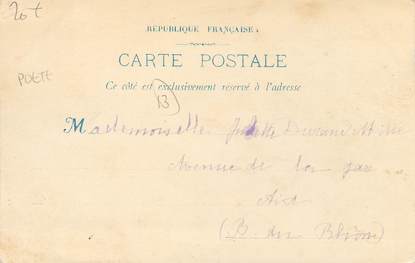 20+
RÉPUBLIQUE FRANÇAISE
CARTE POSTALE
POETE
Ce côté est exclusivement réservé à l'adresse
13
Mademoiselle Juliette
Avenue de la gare
Aix
(B. du Rhône)